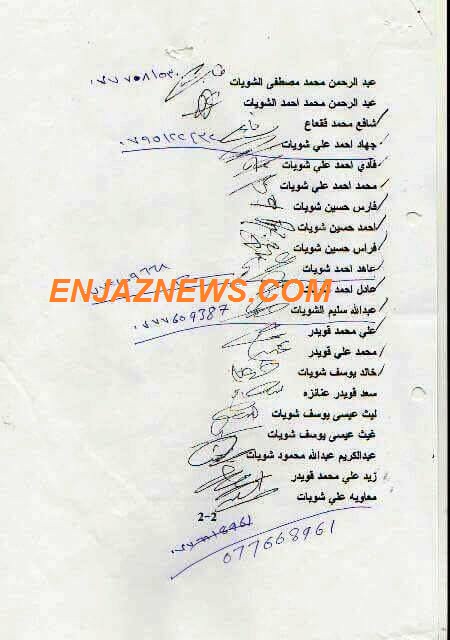 عبد الرحمن محمد مصطفى الشويات
عبد الرحمن محمد احمد الشويات
شافع محمد قفعاع
جهاد احمد علي شويات
فادي احمد علي شويات
محمد احمد علي شويات
فارس حسين شويات
احمد حسين شويات
فراس حسين شويات
عاهد احمد شويات
عادل احمد شويات
ENJAZNEWS.COM
عبدالله سليم الشويات
علي محمد قويدر
محمد علي قويدر
خالد يوسف شويات
سعد قويدر عنانزه
ليث عيسى يوسف شويات
غيث عيسى يوسف شويات
عبدالكريم عبدالله محمود شويات
زيد علي محمد قويدر
معاويه علي شويات
2-2
077668961